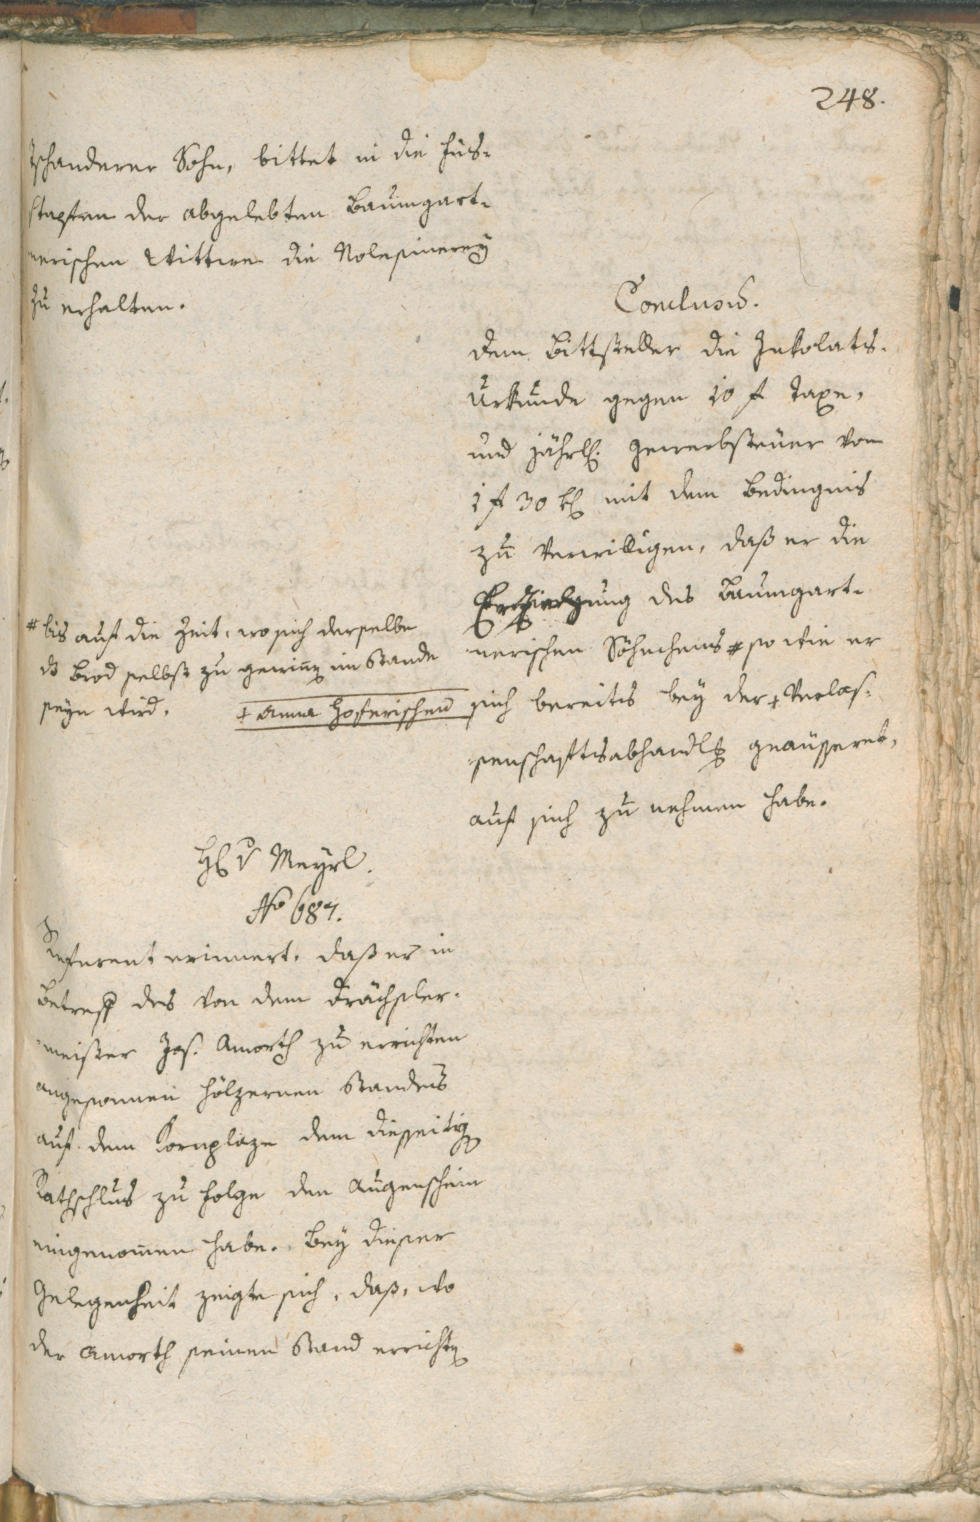 248.
schanderer Sohn, bittet in die Fus-
stapfen der abgelebten Baumgart-
nerischen Wittwe die
zu erhalten.
Conclusũ.
Dem Bittsteller die Inkolats-
Urkunde gegen 10 f Taxe,
und jährl. Gewerbsteuer von
1 f 30 kr mit dem Bedingnis
zu verwilligen, daß er die
Erziehung des Baumgart-
nerischen Söhnchens # so wie er
sich bereits bey der + Verlas-
senschaftsabhandlg geäussert,
auf sich zu nehmen habe.
# bis auf die Zeit, wo sich derselbe
ds Brod selbst zu gewinen im Stande
seyn wird.
+ Anna Hoferischen
H v Meyrl.
No 687.
Referent erinnert, daß er in
Betreff des von dem Drächsler-
meister Jos. Amorth zu errichten
angesonnen hölzernen Standes
auf dem Kornplaze dem diesseitigen
Rathschlus zu Folge den Augenschein
eingenomen habe. Bey dieser
Gelegenheit zeigte sich, daß, wo
der Amorth seinen Stand errichten